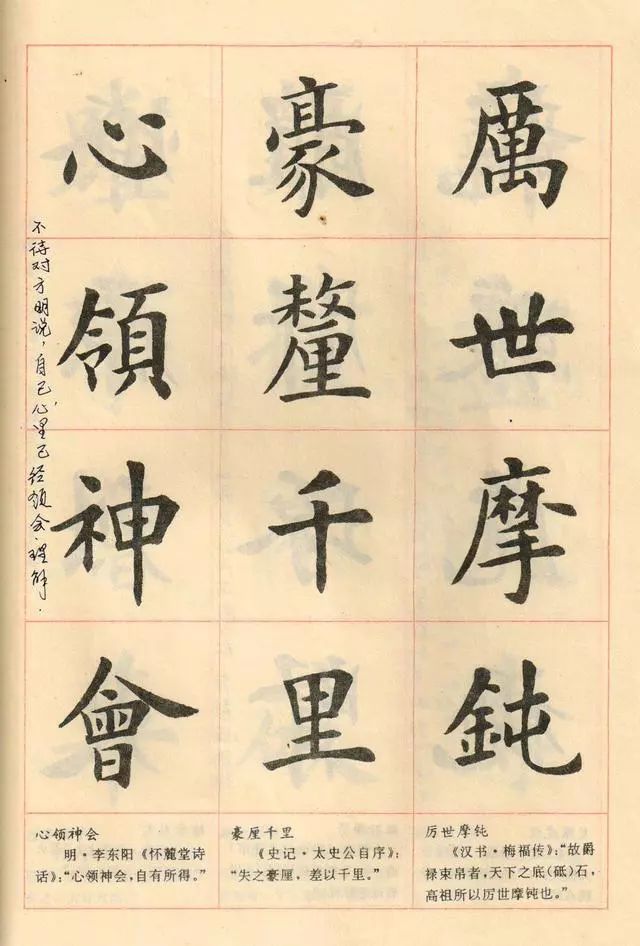 厲世摩鈍
豪釐千里
心領神會
不待对方明说，自己心里已经领会、理解．
心领神会
明·李东阳《怀麓堂诗
话》：“心领神会，自有所得。”
豪厘千里
《史记·太史公自序》：
“失之豪厘，差以千里。”
厉世摩钝
《汉书·梅福传》：“故爵
禄束帛者，天下之底(砥)石，
高祖所以厉世摩钝也。”